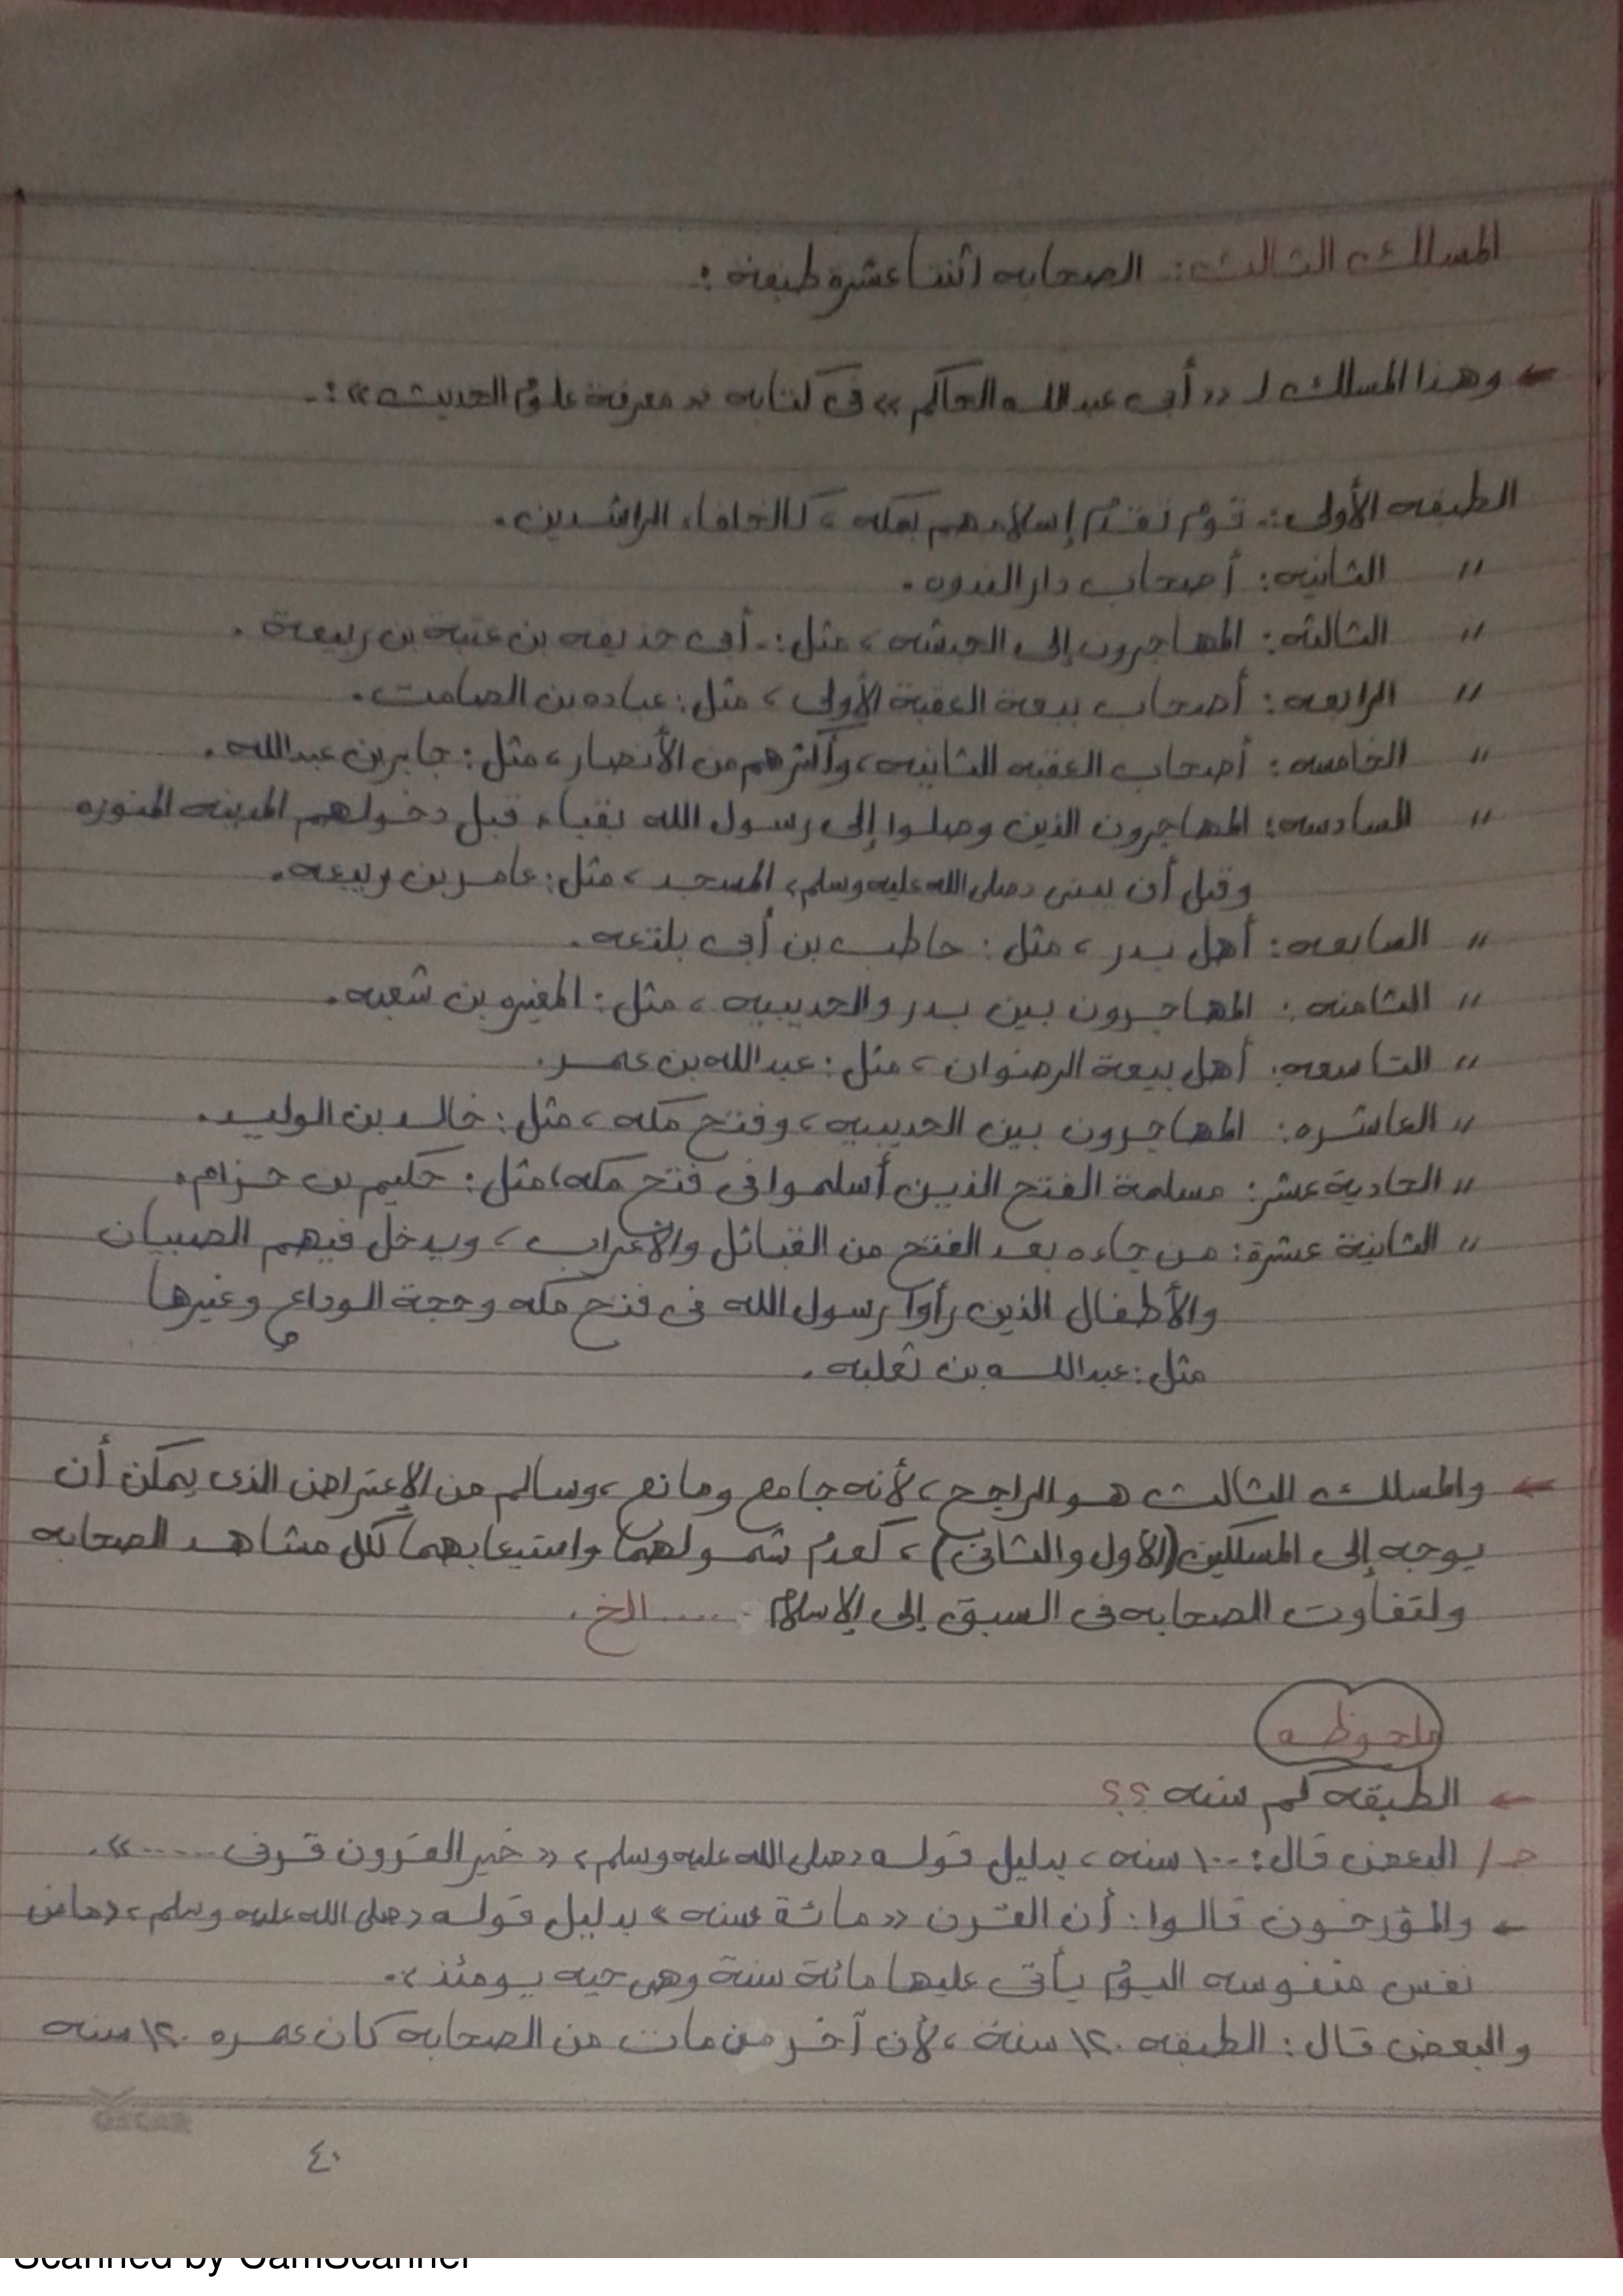 المسلك الثالث :- الصحابه اثنتا عشرة طبقة :-
← وهذا المسلك لـ «أبى عبد الله الحاكم» فى كتابه «معرفة علوم الحديث» :-
الطبقه الأولى :- قوم تقدم إسلامهم بمكه ، كالخلفاء الراشدين .
〃 الثانيه : أصحاب دار الندوه .
〃 الثالثه : المهاجرون إلى الحبشه ، مثل :- أبى حذيفه بن عتبه بن ربيعة .
〃 الرابعه : أصحاب بيعة العقبة الأولى ، مثل : عباده بن الصامت .
〃 الخامسه : أصحاب العقبه الثانيه ، وأكثرهم من الأنصار ، مثل : جابر بن عبد الله .
〃 السادسه : المهاجرون الذين وصلوا إلى رسول الله بقباء قبل دخولهم المدينه المنوره
وقبل أن يبنى «صلى الله عليه وسلم» المسجد ، مثل : عامر بن ربيعه .
〃 السابعه : أهل بدر ، مثل : حاطب بن أبى بلتعه .
〃 الثامنه : المهاجرون بين بدر والحديبيه ، مثل : المغيره بن شعبه .
〃 التاسعه : أهل بيعة الرضوان ، مثل : عبد الله بن عمر .
〃 العاشره : المهاجرون بين الحديبيه ، وفتح مكه ، مثل : خالد بن الوليد .
〃 الحادية عشر : مسلمة الفتح الذين أسلموا فى فتح مكه ، مثل : حكيم بن حزام .
〃 الثانية عشرة : من جاءه بعد الفتح من القبائل والأعراب ، ويدخل فيهم الصبيان
والأطفال الذين رأوا رسول الله فى فتح مكه وحجة الوداع وغيرها
مثل : عبد الله بن ثعلبه .
← والمسلك الثالث هو الراجح ، لأنه جامع ومانع ، وسالم من الإعتراض الذى يمكن أن
يوجه إلى المسلكين (الأول والثانى) ، كعدم شمولهما واستيعابهما لكل مشاهد الصحابه
ولتفاوت الصحابه فى السبق إلى الإسلام ..... الخ .
ملحوظه
← الطبقه كم سنه ؟؟
جـ/ البعض قال : ١٠٠ سنه ، بدليل قوله «صلى الله عليه وسلم» «خير القرون قرنى .....» .
← والمؤرخون قالوا : أن القرن «مائة سنه» بدليل قوله «صلى الله عليه وسلم» «ما من
نفس منفوسه اليوم يأتى عليها مائة سنة وهى حيه يومئذ» .
والبعض قال : الطبقه ١٢٠ سنة ، لأن آخر من مات من الصحابه كان عمره ١٢٠ سنه
OSCAR
٤٠
Scanned by CamScanner